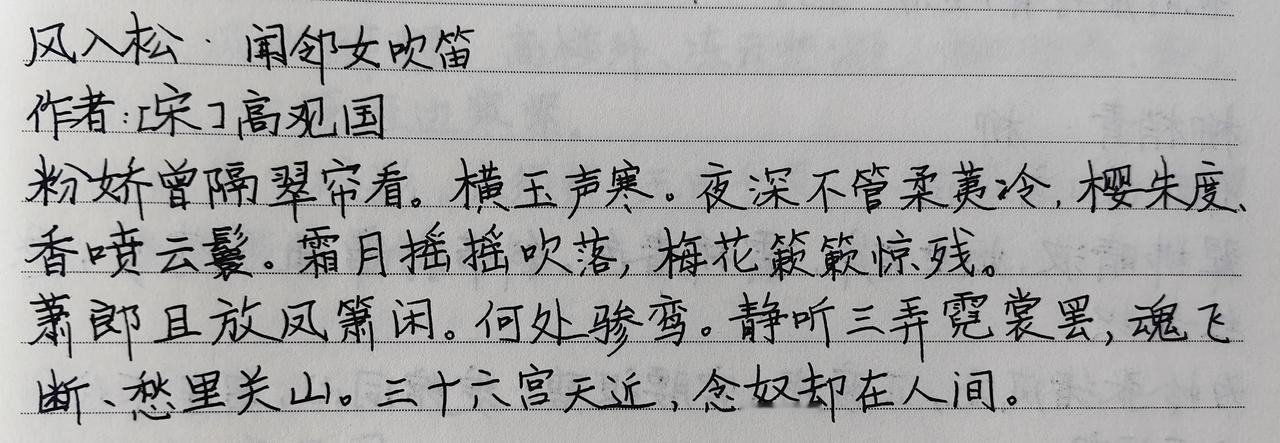 风入松·闻邻女吹笛
作者:[宋]高观国
粉娇曾隔翠帘看。横玉声寒。夜深不管柔荑冷,樱朱度、
香喷云鬟。霜月摇摇吹落,梅花簌簌惊残。
萧郎且放凤箫闲。何处骖鸾。静听三弄霓裳罢,魂飞
断、愁里关山。三十六宫天近,念奴却在人间。